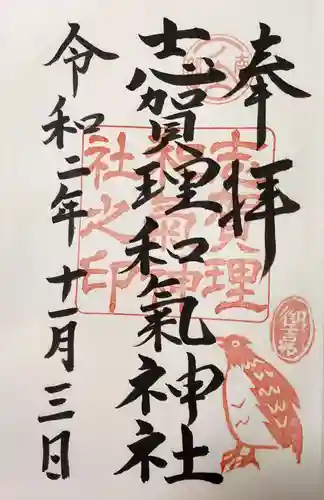 奉拝
志賀理和氣神社
令和二年十一月三日
志賀理
和氣神
社之印